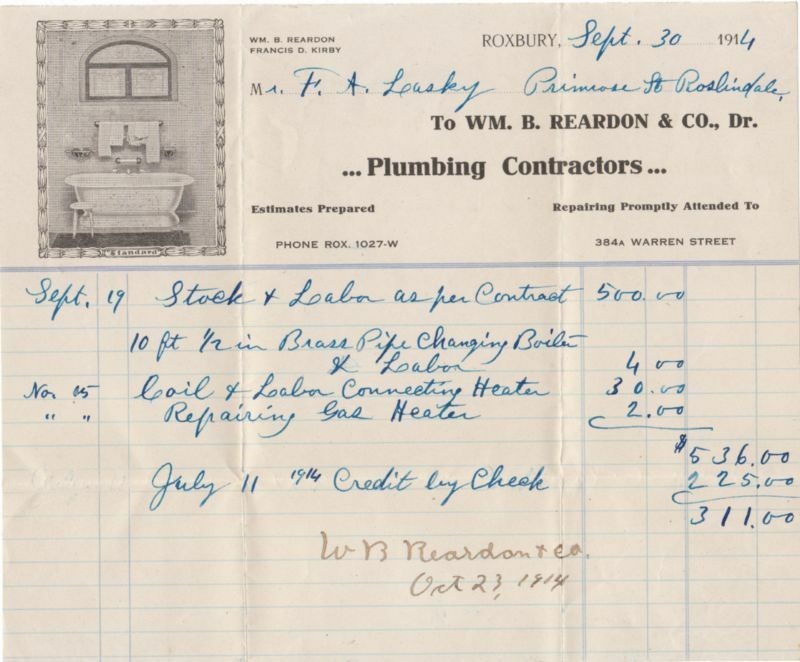 WM. B. REARDON
FRANCIS D. KIRBY
ROXBURY, Sept. 30 1914
Mr. F. A. Lasky Primrose St Roslindale,
To WM. B. REARDON & CO., Dr.
... Plumbing Contractors ...
Estimates Prepared Repairing Promptly Attended To
PHONE ROX. 1027-W 384A WARREN STREET
"Standard"
Sept. 19 Stock & Labor as per Contract 500.00
10 ft 1/2 in Brass Pipe Changing Boiler
& Labor 4 00
Nov. Coil & Labor Connecting Heater 30.00
" " Repairing Gas Heater 2.00
$536.00
July 11 1914 Credit by Check 225.00
311.00
W B Reardon & Co.
Oct 23, 1914